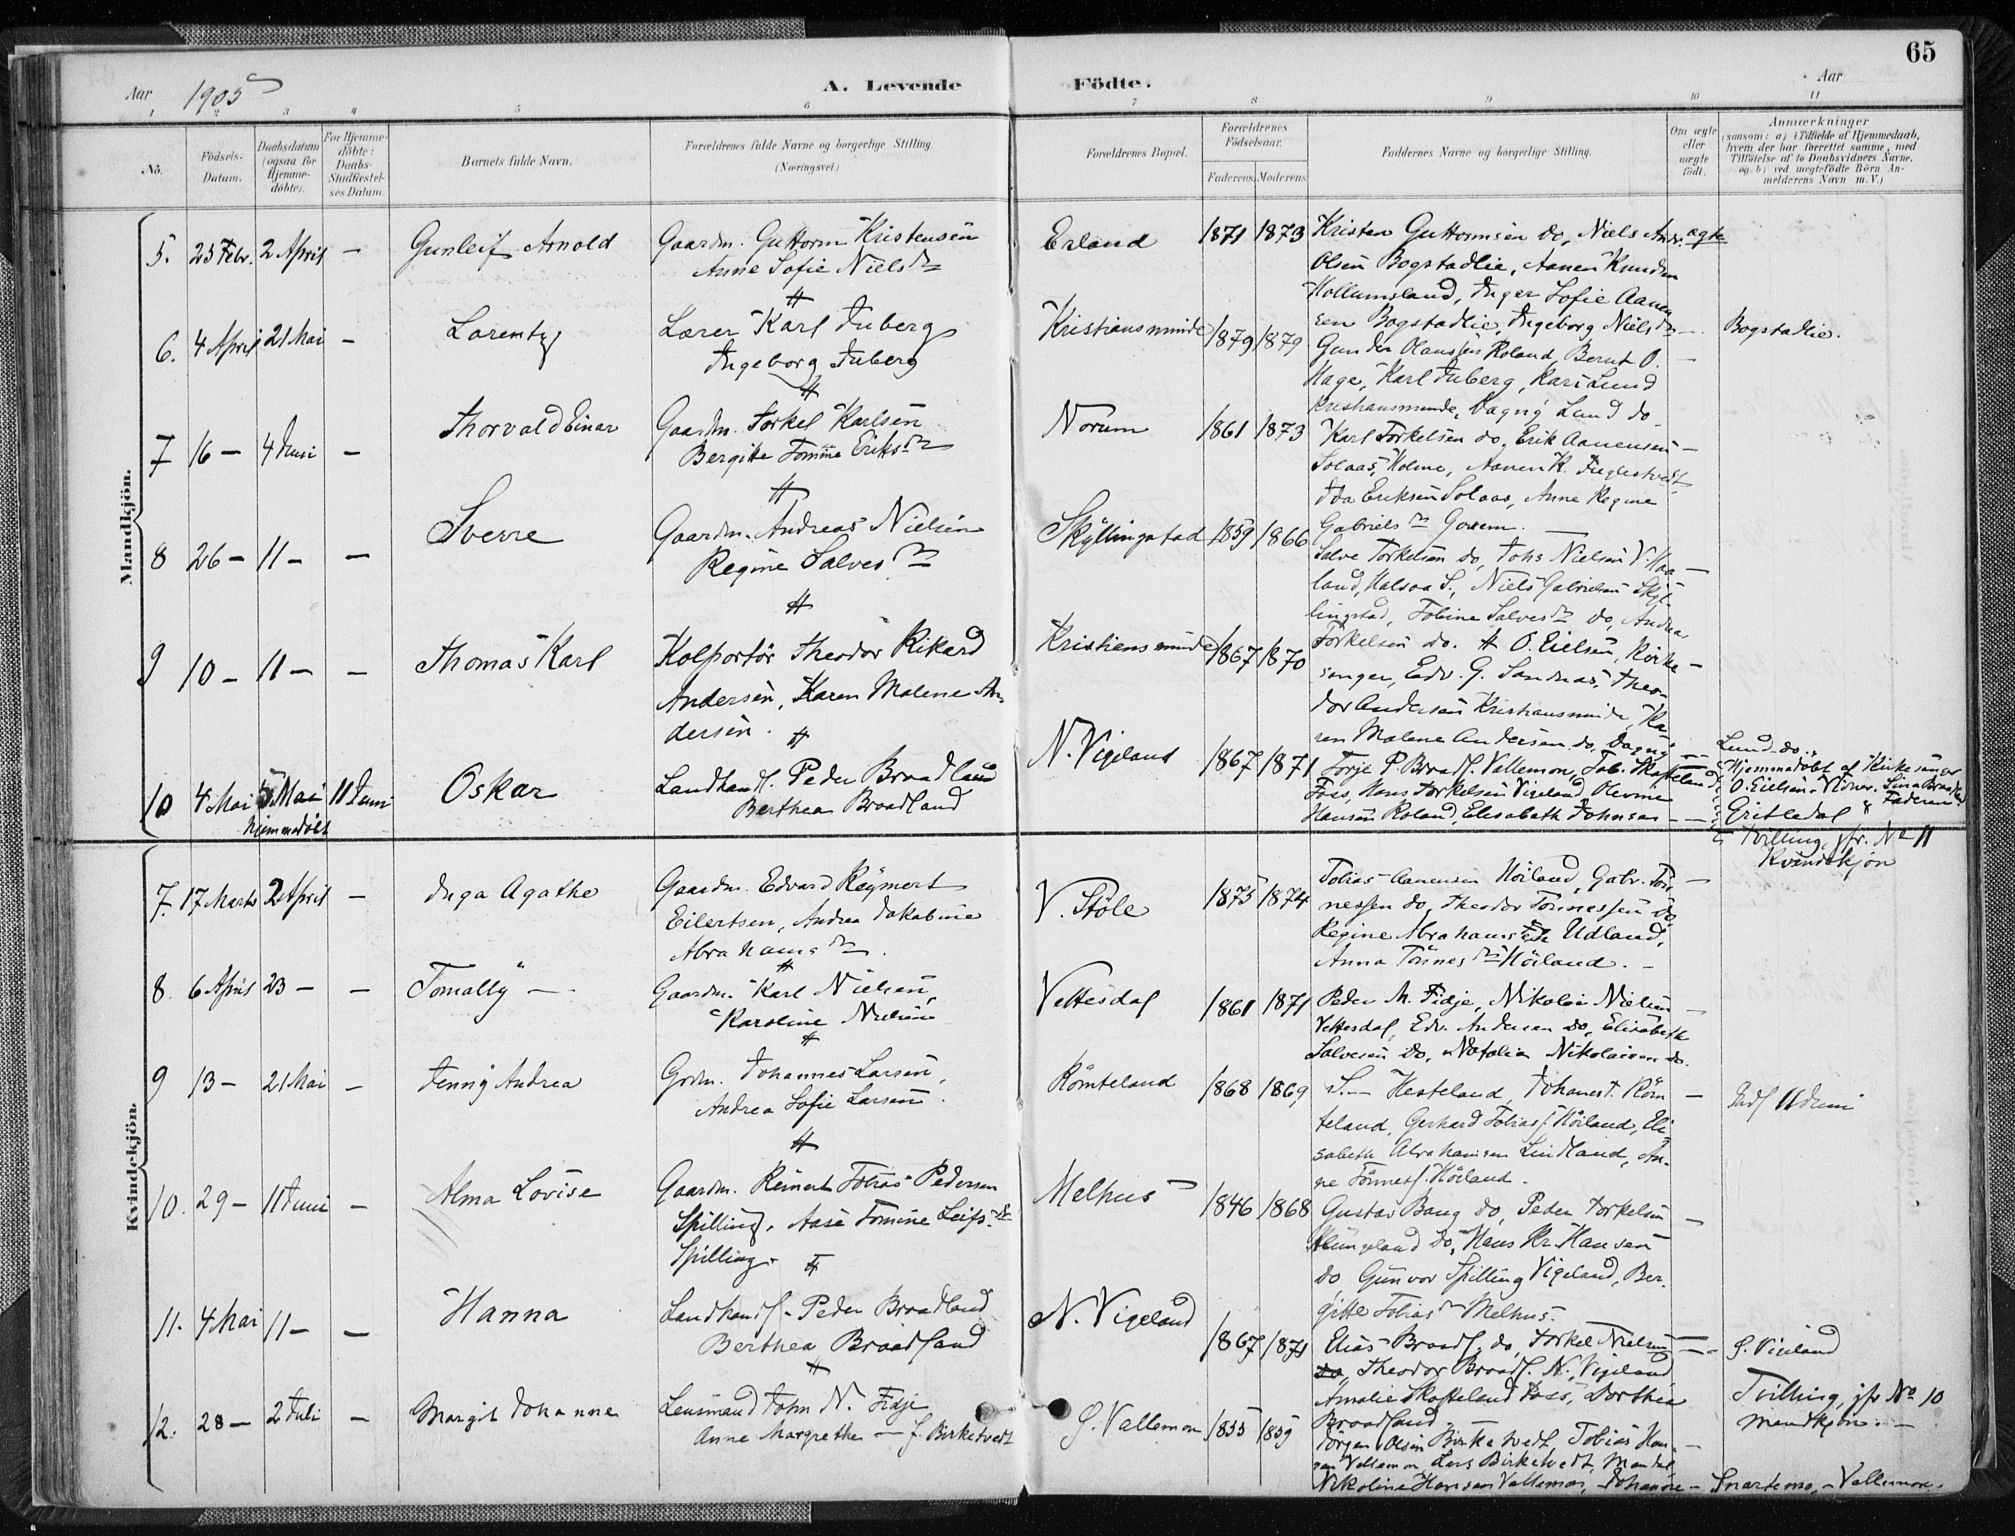 65
Aar 1905
A. Levende Födte.
Aar
1 2 3 4 5 6 7 8 9 10 11
No.
Födsels-
Datum.
Daabsdatum
(ogsaa for
Hjemme-
döbte).
For Hjemme-
döbte:
Daabs-
Stadfæstel-
ses Datum.
Barnets fulde Navn.
Forældrenes fulde Navne og borgerlige Stilling.
(Næringsvei.)
Forældrenes Bopæl.
Forældrenes
Födselsaar.
Faderens. Moderens.
Faddernes Navne og borgerlige Stilling.
Om ægte
eller
uægte
födt.
Anmærkninger
(saasom: a) i Tilfælde af Hjemmedaab,
hvem der har forrettet samme, med
Tilföielse af to Daabsvidners Navne.
og b) ved uægtefödte Börn An-
melderens Navn m. V.)
Mandkjön.
5. 25 Febr. 2 April — Gunleif Arnold
Gaardm. Guttorm Kristensen
Anne Sofie Nielsdr
Erland 1871 1873
Kristen Guttormsen do, Niels Andr. ægte
Olsen Bogstadlie, Aanen Knudsen
Hollumsland, Inger Sofie Aanen
sen Bogstadlie, Ingeborg Nielsdr — Bogstadlie.
6. 4 April 21 Mai — Lorentz
Lærer Karl Tuberg
Ingeborg Tuberg
Kristiansminde 1879 1879
Gunder Olaussen Roland, Bernt O.
Hage, Karl Tuberg, Kari Lund
Kristiansminde, Dagny Lund do
7 16 — 4 Juni — Thorvald Einar
Gaardm. Torkel Karlsen
Bergitte Tomine Eriksdr
Norum 1861 1873
Karl Torkelsen do, Erik Aanensen —
Solaas, Holme, Aanen K. Fuglestvedt,
Ida Eriksen Solaas, Anne Regine
Gabrielsdr Goxem.
8 26 — 11 — — Sverre
Gaardm. Andreas Nielsen
Regine Salvesdr
Skyllingstad 1859 1866
Salve Torkelsen do, Johs Nielsen V. Haa —
land, Halsaa S., Niels Gabrielsen Skyl
lingstad, Tobine Salvesdr do, Andreas
Torkelsen do.
9 10 — 11 — — Thomas Karl
Kolportör Theodor Rikard
Andersen, Karen Malene An-
dersen.
Kristiansminde 1867 1870
O. Eielsen, Kirke —
sanger, Edv. G. Sandnas, Theo-
dor Andersen Kristiansminde, Ka-
ren Malene Andersen do, Dagny — Lund do.
10 4 Mai 5 Mai 11 Juni Oskar
hjemmedöbt
Landhandl. Peder Braadland
Berthea Braadland
N. Vigeland 1867 1871
Torje P. Braadl. Vallemon, Tob. Skofteland
Foss, Hans Torkelsen Vigeland, Olevine
Hansen Roland, Elisabeth Johnsen —
Hjemmedöbt af Kirkesanger
O. Eielsen. Vidner. Sina Braadland
Gritledal " Faderen
Tvilling, jfr. No 11
Kvindekjön
Kvindekjön.
7. 17 Marts 2 April — Inga Agathe
Gaardm. Edvard Reymert
Eilertsen, Andrea Jakobine
Abrahamsdr.
V. Stöle 1875 1874
Tobias Aanensen Höiland, Gabr. Tön —
nessen do, Theodor Tönnessen do,
Regine Abrahamsdr Udland,
Anna Tönnesdr Höiland. —
8. 6 April 23 — — Tomally —
Gaardm. Karl Nielsen,
Karoline Nielsen
Vettesdal 1861 1871
Peder M. Fidje, Nikolai Nielsen —
Vettesdal, Edv. Andersen do, Elisabeth
Salvesen do, Natalia Nikolaisen do.
9 13 — 21 Mai — Jenny Andrea
Grdm. Johannes Larsen,
Andrea Sofie Larsen.
Römteland 1868 1869
S. — Hesteland, Johanes T. Röm —
teland, Gerhard Tobiass. Höiland, Eli
sabeth Abrahamsen Lindland, An-
ne Tönness. Höiland.
Indf 11 Juni
10. 29 — 11 Juni — Alma Lovise
Gaardm. Reinert Tobias Pedersen
Spilling, Aase Tomine Leifsdr
Spilling.
Melhus 1846 1868
Gustav Bang do, Peder Torkelsen —
do, Hans Kr. Hansen
do Gunvor Spilling Vigeland, Ber-
gitte Tobiasdr Melhus.
11. 4 Mai 11 — — Hanna
Landhandl. Peder Braadland
Berthea Braadland
N. Vigeland 1867 1871
Elias Braadl. do, Torkel Nielsen — S. Vigeland
do, Theodor Braadl. N. Vigeland
Amalie Skofteland Foss, Dorthea
Braadland.
Tvilling, jfr No 10
mandkjön.
12. 28 — 2 Juli — Margit Johanne
Lensmand John N. Fidje
Anne Margrethe — f. Birketvedt
S. Vallemon 1855 1859
Jörgen Olsen Birketvedt, Tobias Han- —
sen Vallemon, Lars Birketvedt, Mandal,
Nikoline Hansen Vallemon, Johanne — Snartemo, — Vallemon.